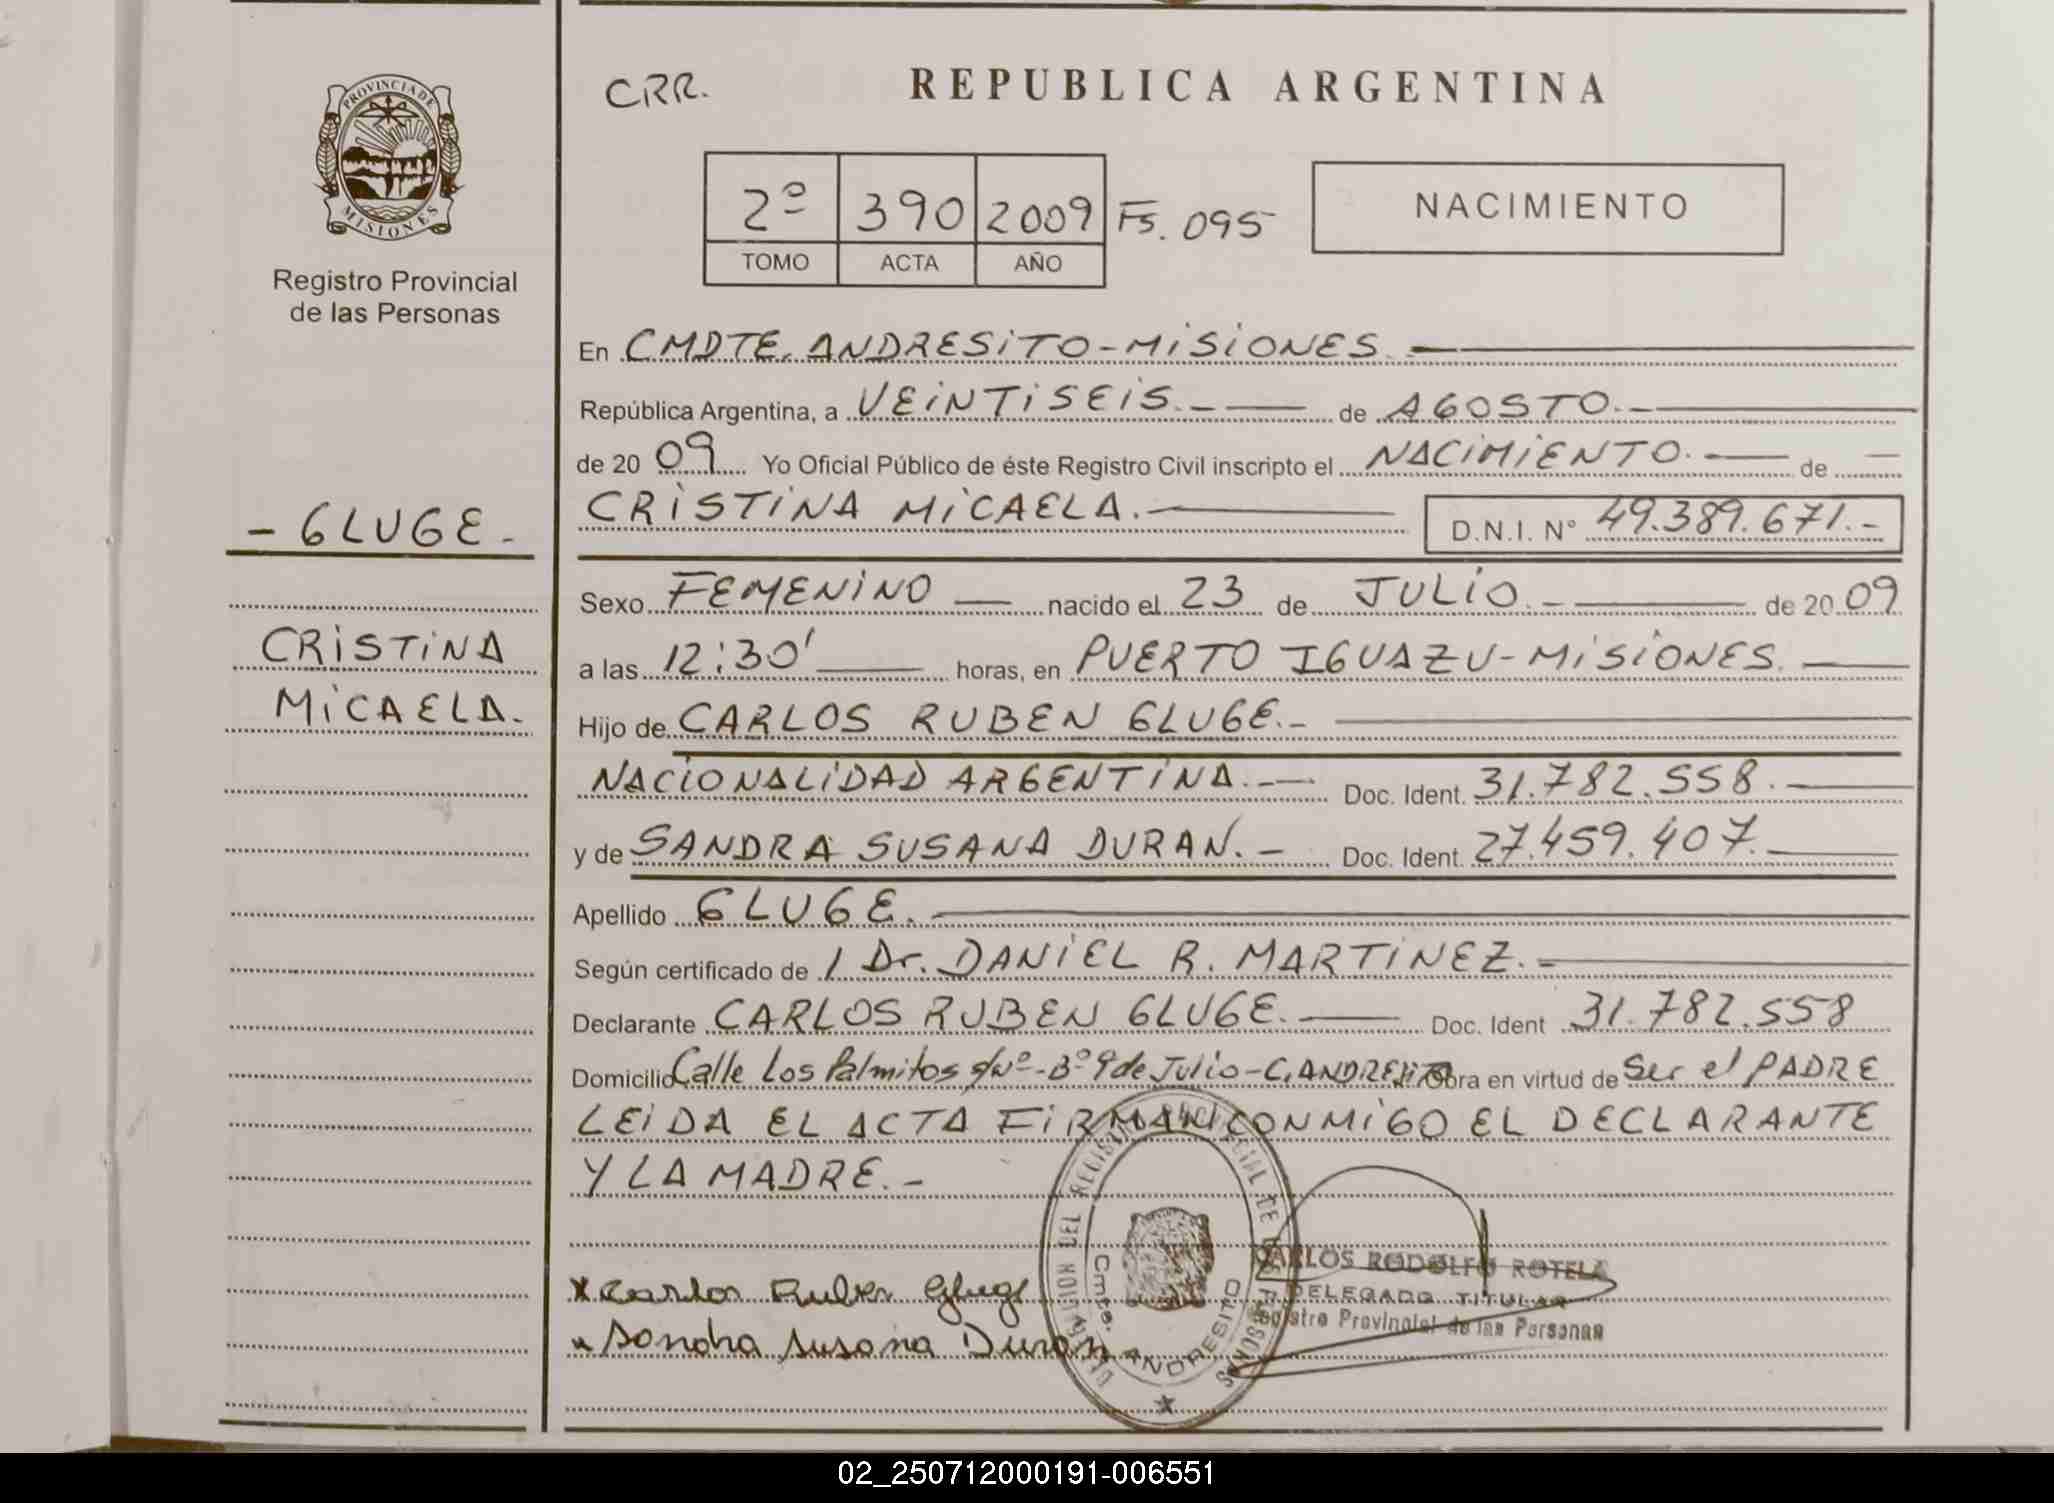 PROVINCIA DE
MISIONES
Registro Provincial
de las Personas
- GLUGE -
CRISTINA
MICAELA.
CRR.
REPUBLICA ARGENTINA
2º 390 2009 Fs. 095
TOMO ACTA AÑO
NACIMIENTO
En CMDTE. ANDRESITO-MISIONES.
República Argentina, a VEINTISEIS.- de AGOSTO.-
de 2009 Yo Oficial Público de éste Registro Civil inscripto el NACIMIENTO.- de
CRISTINA MICAELA.- D.N.I. Nº 49.389.671.-
Sexo FEMENINO - nacido el 23 de JULIO.- de 2009
a las 12:30' horas, en PUERTO IGUAZU-MISIONES.
Hijo de CARLOS RUBEN GLUGE.-
NACIONALIDAD ARGENTINA.- Doc. Ident. 31.782.558.
y de SANDRA SUSANA DURAN.- Doc. Ident. 27.459.407.
Apellido GLUGE.
Según certificado de / Dr. DANIEL R. MARTINEZ.-
Declarante CARLOS RUBEN GLUGE. Doc. Ident 31.782.558
Domicilio Calle Los Palmitos s/nº-Bº 9 de Julio-C.ANDRESITO Obra en virtud de Ser el PADRE
LEIDA EL ACTA FIRMAN CONMIGO EL DECLARANTE
Y LA MADRE.-
x Carlos Ruben Gluge
x Sandra Susana Duran
DELEGACION DEL REGISTRO PROVINCIAL DE LAS PERSONAS
Cmte. ANDRESITO
CARLOS RODOLFO ROTELA
DELEGADO TITULAR
Registro Provincial de las Personas
02_250712000191-006551